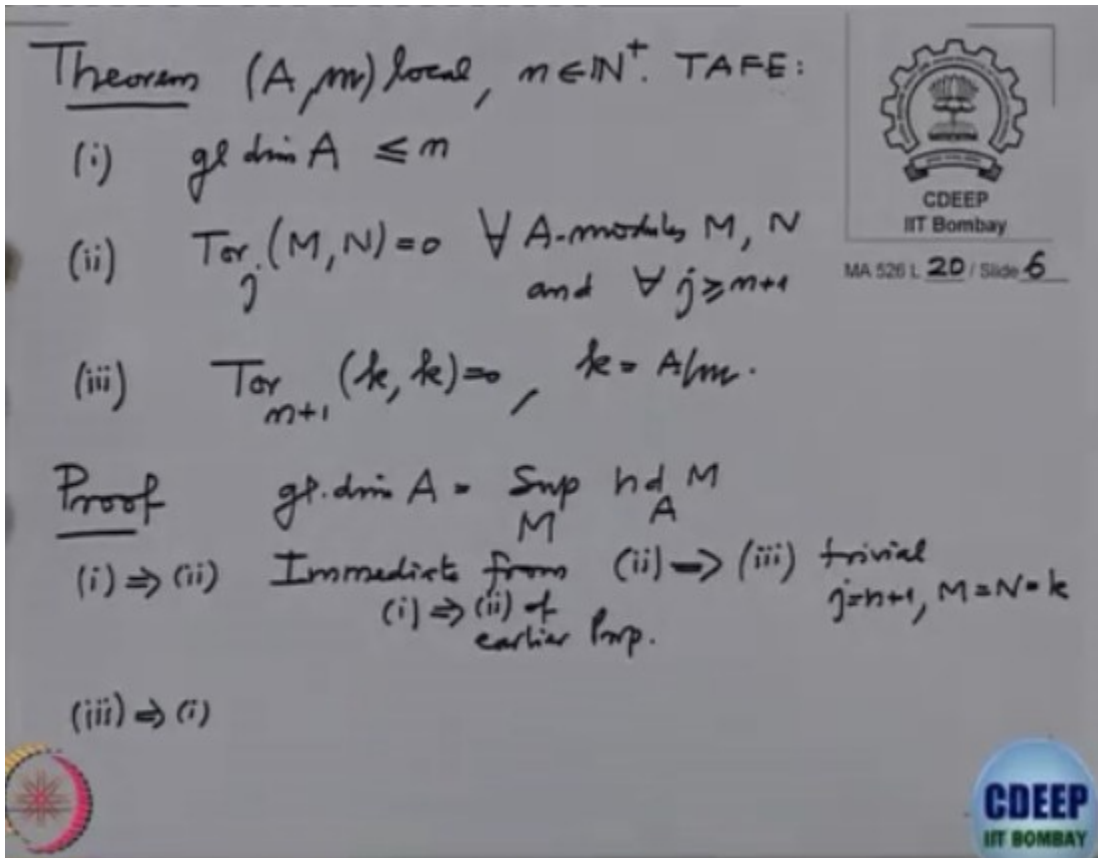 Theorem (A, m) local, n ∈ ℕ⁺. TAFE:
(i) gl dim A ≤ n
(ii) Tor_j (M, N) = 0 ∀ A-modules M, N
and ∀ j ≥ n+1
(iii) Tor_{n+1} (k, k) = 0, k = A/m.
Proof gl. dim A = Sup_M hd_A M
(i) ⇒ (ii) Immediate from (ii) ⇒ (iii) trivial
(i) ⇒ (ii) of j=n+1, M=N=k
earlier Prop.
(iii) ⇒ (i)
CDEEP
IIT Bombay
MA 526 L 20 / Slide 6
CDEEP
IIT BOMBAY